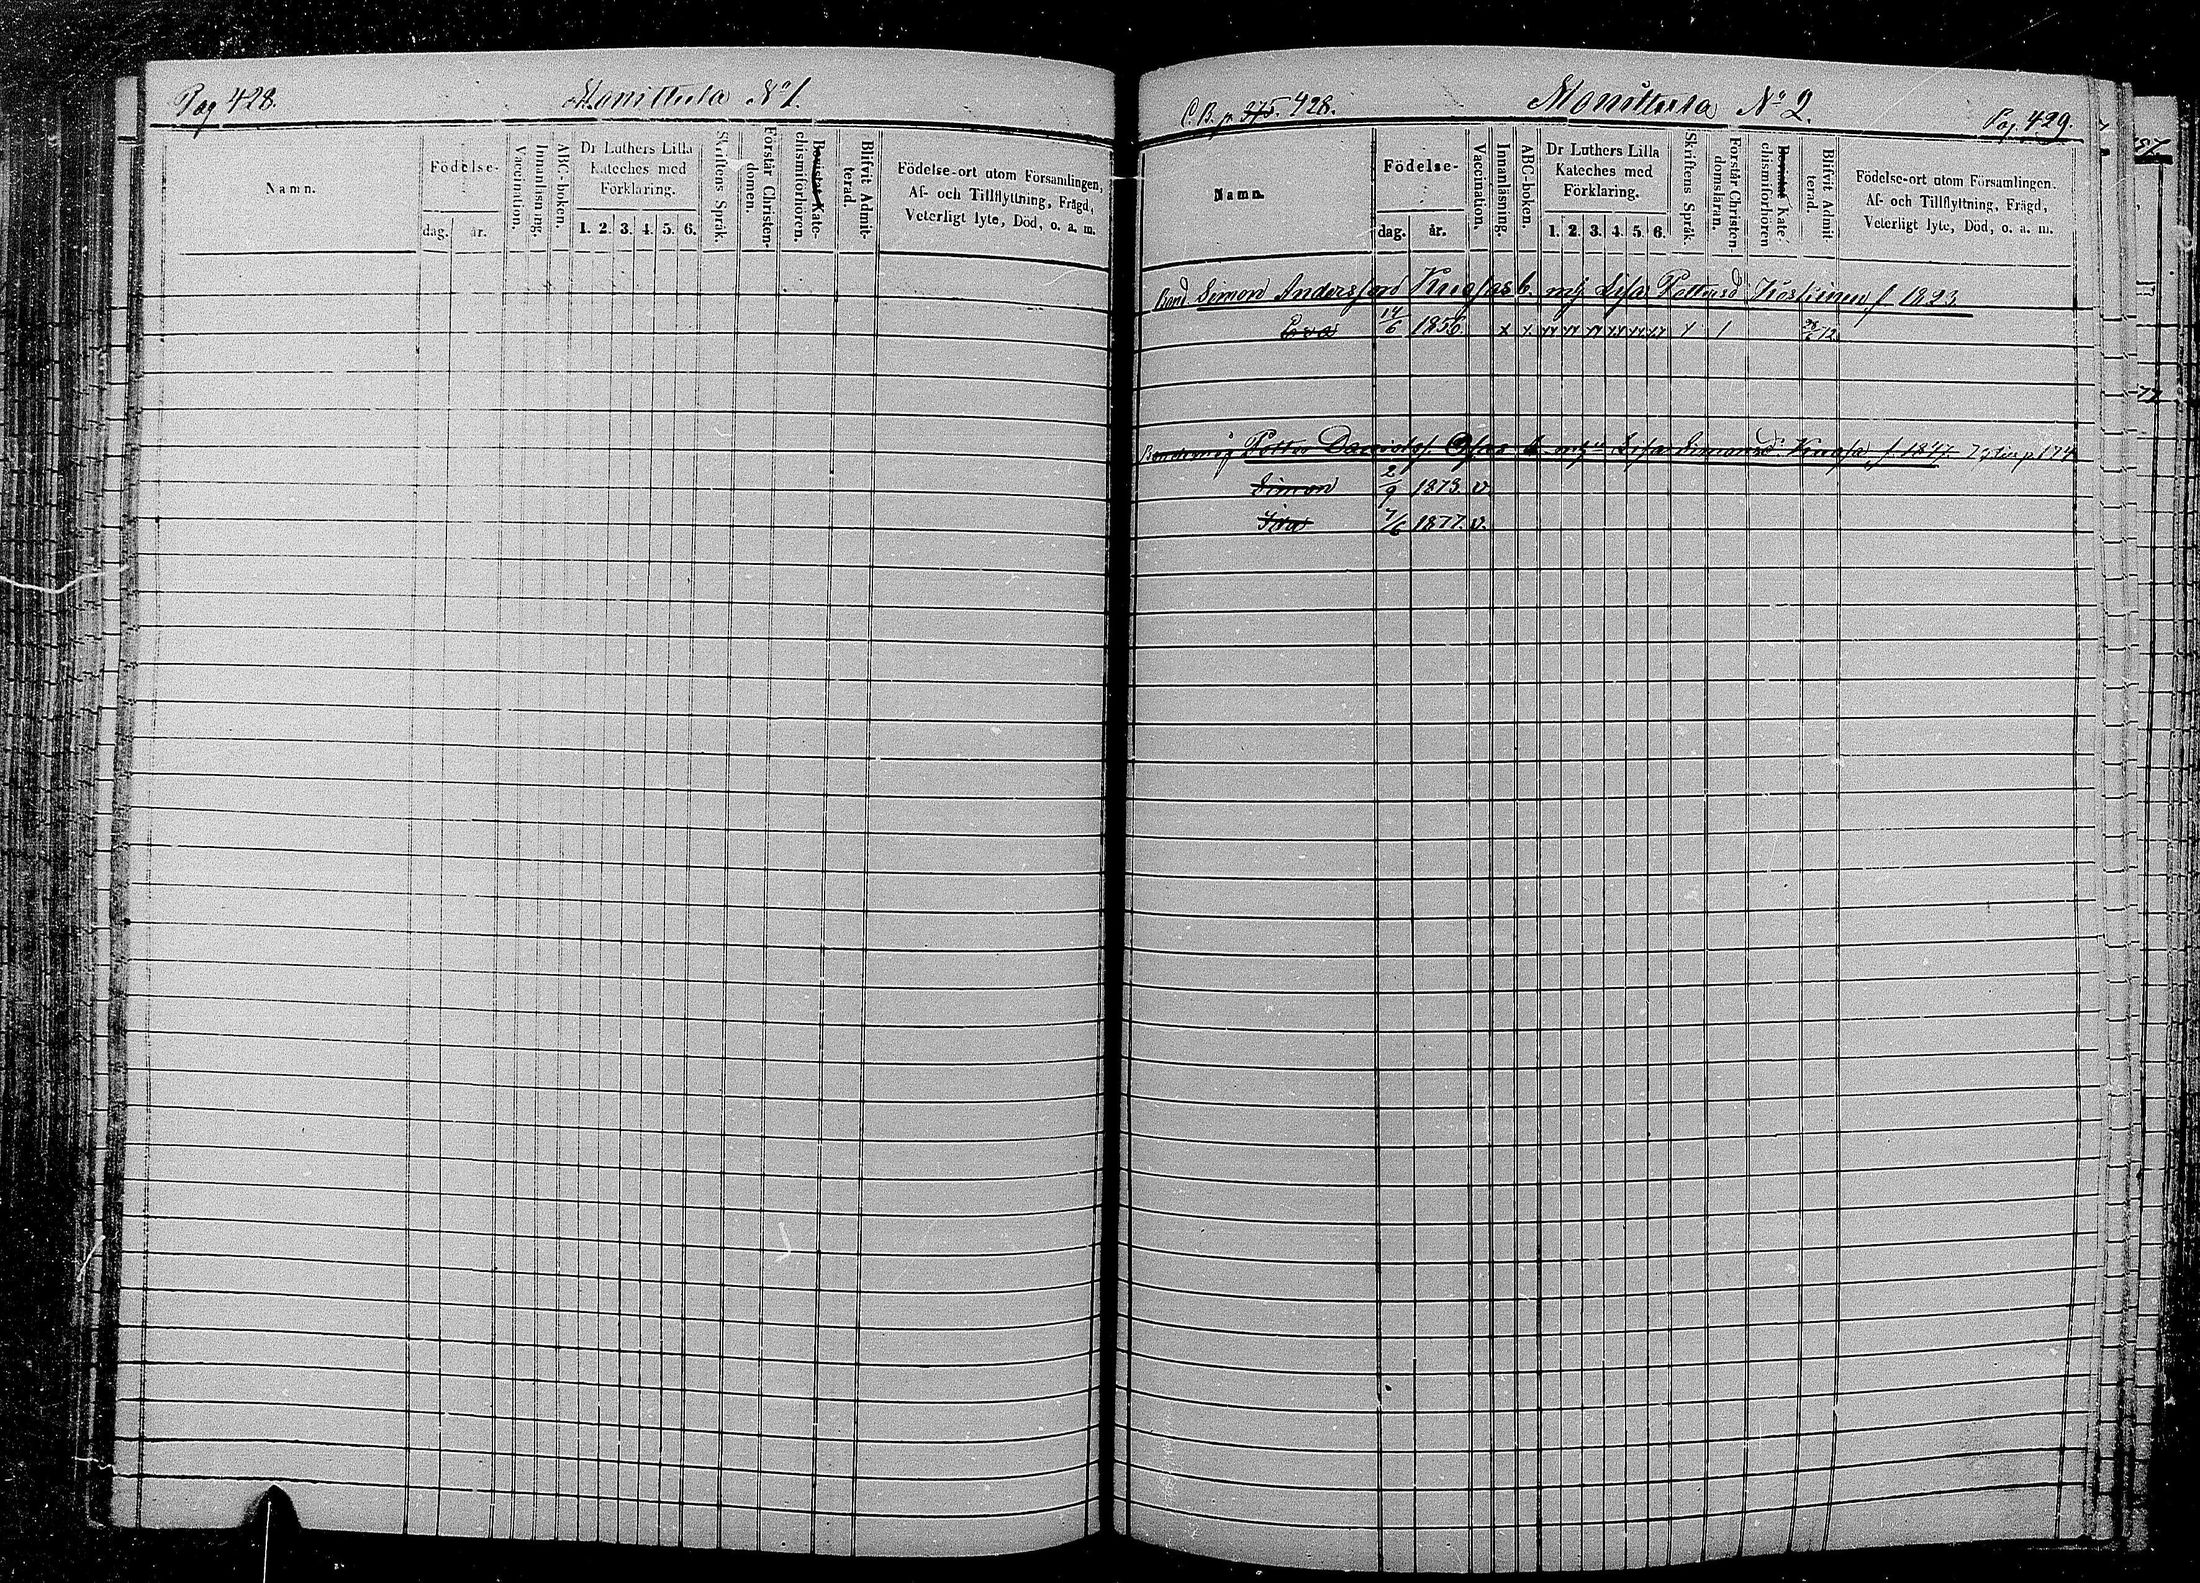 Pag 428.
Monittula No 1.
Namn.
Födelse-
dag.
år.
Vaccination.
Innanläsning.
ABC-boken.
Dr Luthers Lilla
Kateches med
Förklaring.
1. 2. 3. 4. 5. 6.
Skriftens Språk.
Förstår Christen-
domen.
Bevistat Kate-
chismiförhören.
Blifvit Admit-
terad.
Födelse-ort utom Församlingen,
Af- och Tillflyttning, Frägd,
Veterligt lyte, Död, o. a. m.
C. B. p. 375. 428.
Monittula No 2.
Pag. 429.
Namn.
Födelse-
dag.
år.
Vaccination.
Innanläsning.
ABC-boken.
Dr Luthers Lilla
Kateches med
Förklaring.
1. 2. 3. 4. 5. 6.
Skriftens Språk.
Förstår Christen-
domsläran.
Bevistat Kate-
chismiförhören
Blifvit Admit-
terad.
Födelse-ort utom Församlingen.
Af- och Tillflyttning, Frägd,
Veterligt lyte, Död, o. a. m.
Bond Simon Anders Lisa f. 1823
Eva 14/6 1856. x x
Petter Davidsf. Lisa Simonsd f 1847
Simon 2/9 1873. v.
7/6 1877. v.